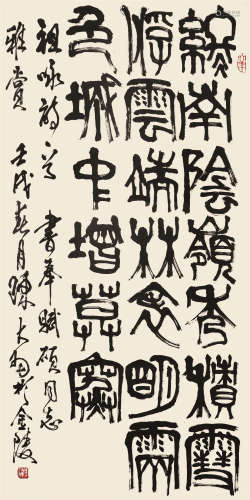 終南陰嶺秀積雪
浮雲端林表明霽
色城中增暮寒
祖詠詩 書奉賦碩同志
雅賞 壬戌春月陳大羽於金陵